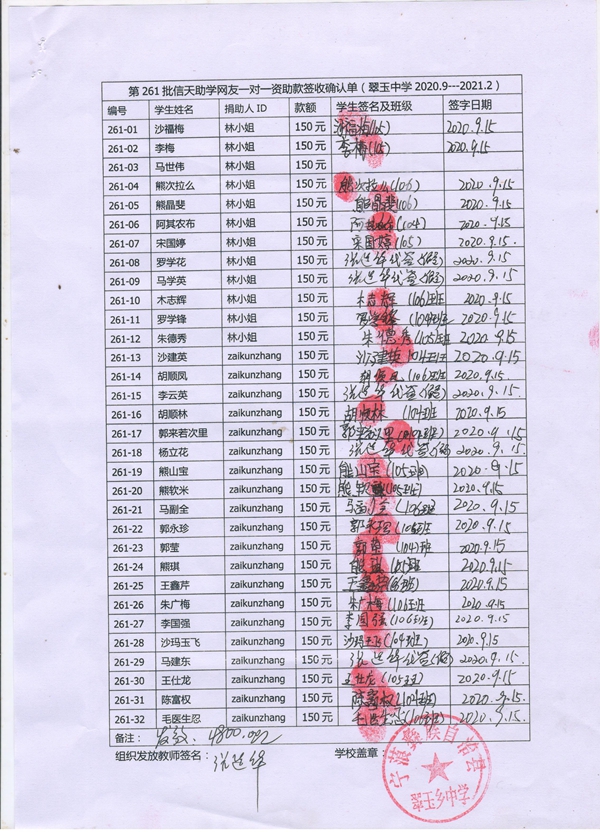 第 261 批信天助学网友一对一资助款签收确认单（翠玉中学 2020.9---2021.2）
编号 学生姓名 捐助人 ID 款额 学生签名及班级 签字日期
261-01 沙福梅 林小姐 150 元 沙福梅(105) 2020.9.15
261-02 李梅 林小姐 150 元 李梅(105) 2020.9.15
261-03 马世伟 林小姐 150 元
261-04 熊次拉么 林小姐 150 元 熊次拉么(106) 2020.9.15
261-05 熊晶斐 林小姐 150 元 熊晶斐(106) 2020.9.15
261-06 阿其农布 林小姐 150 元 阿其农布(104) 2020.9.15
261-07 宋国婷 林小姐 150 元 宋国婷(105) 2020.9.15.
261-08 罗学花 林小姐 150 元 代签 2020.9.15.
261-09 马学英 林小姐 150 元 代签 2020.9.15.
261-10 木志辉 林小姐 150 元 木志辉(106)班 2020.9.15
261-11 罗学锋 林小姐 150 元 罗学锋(104)班 2020.9.15.
261-12 朱德秀 林小姐 150 元 朱德秀(105)班 2020.9.15
261-13 沙建英 zaikunzhang 150 元 沙建英 104班 2020.9.15
261-14 胡顺凤 zaikunzhang 150 元 胡顺凤(106)班 2020.9.15
261-15 李云英 zaikunzhang 150 元 代签 2020.9.15.
261-16 胡顺林 zaikunzhang 150 元 胡顺林(104)班 2020.9.15
261-17 郭来若次里 zaikunzhang 150 元 2020.9.15
261-18 杨立花 zaikunzhang 150 元 代签 2020.9.15.
261-19 熊山宝 zaikunzhang 150 元 熊山宝(105班) 2020.9.15
261-20 熊软米 zaikunzhang 150 元 熊软米(105班) 2020.9.15
261-21 马副全 zaikunzhang 150 元 马副全(106班) 2020.9.15
261-22 郭永珍 zaikunzhang 150 元 郭永珍 2020.9.15
261-23 郭莹 zaikunzhang 150 元 郭莹(104)班 2020.9.15
261-24 熊琪 zaikunzhang 150 元 熊琪 105班 2020.9.15
261-25 王鑫芹 zaikunzhang 150 元 王鑫芹 2020.9.15
261-26 朱广梅 zaikunzhang 150 元 朱广梅 2020.9.15
261-27 李国强 zaikunzhang 150 元 李国强(106班) 2020.9.15
261-28 沙玛玉飞 zaikunzhang 150 元 沙玛玉飞(104班) 2020.9.15
261-29 马建东 zaikunzhang 150 元 代签 2020.9.15.
261-30 王仕龙 zaikunzhang 150 元 王仕龙(105班) 2020.9.15
261-31 陈富权 zaikunzhang 150 元 陈富权(104班) 2020.9.15.
261-32 毛医生忍 zaikunzhang 150 元 毛医生忍 2020.9.15
备注： 4800.
组织发放教师签名： 学校盖章：
宁蒗彝族自治县
翠玉乡中学